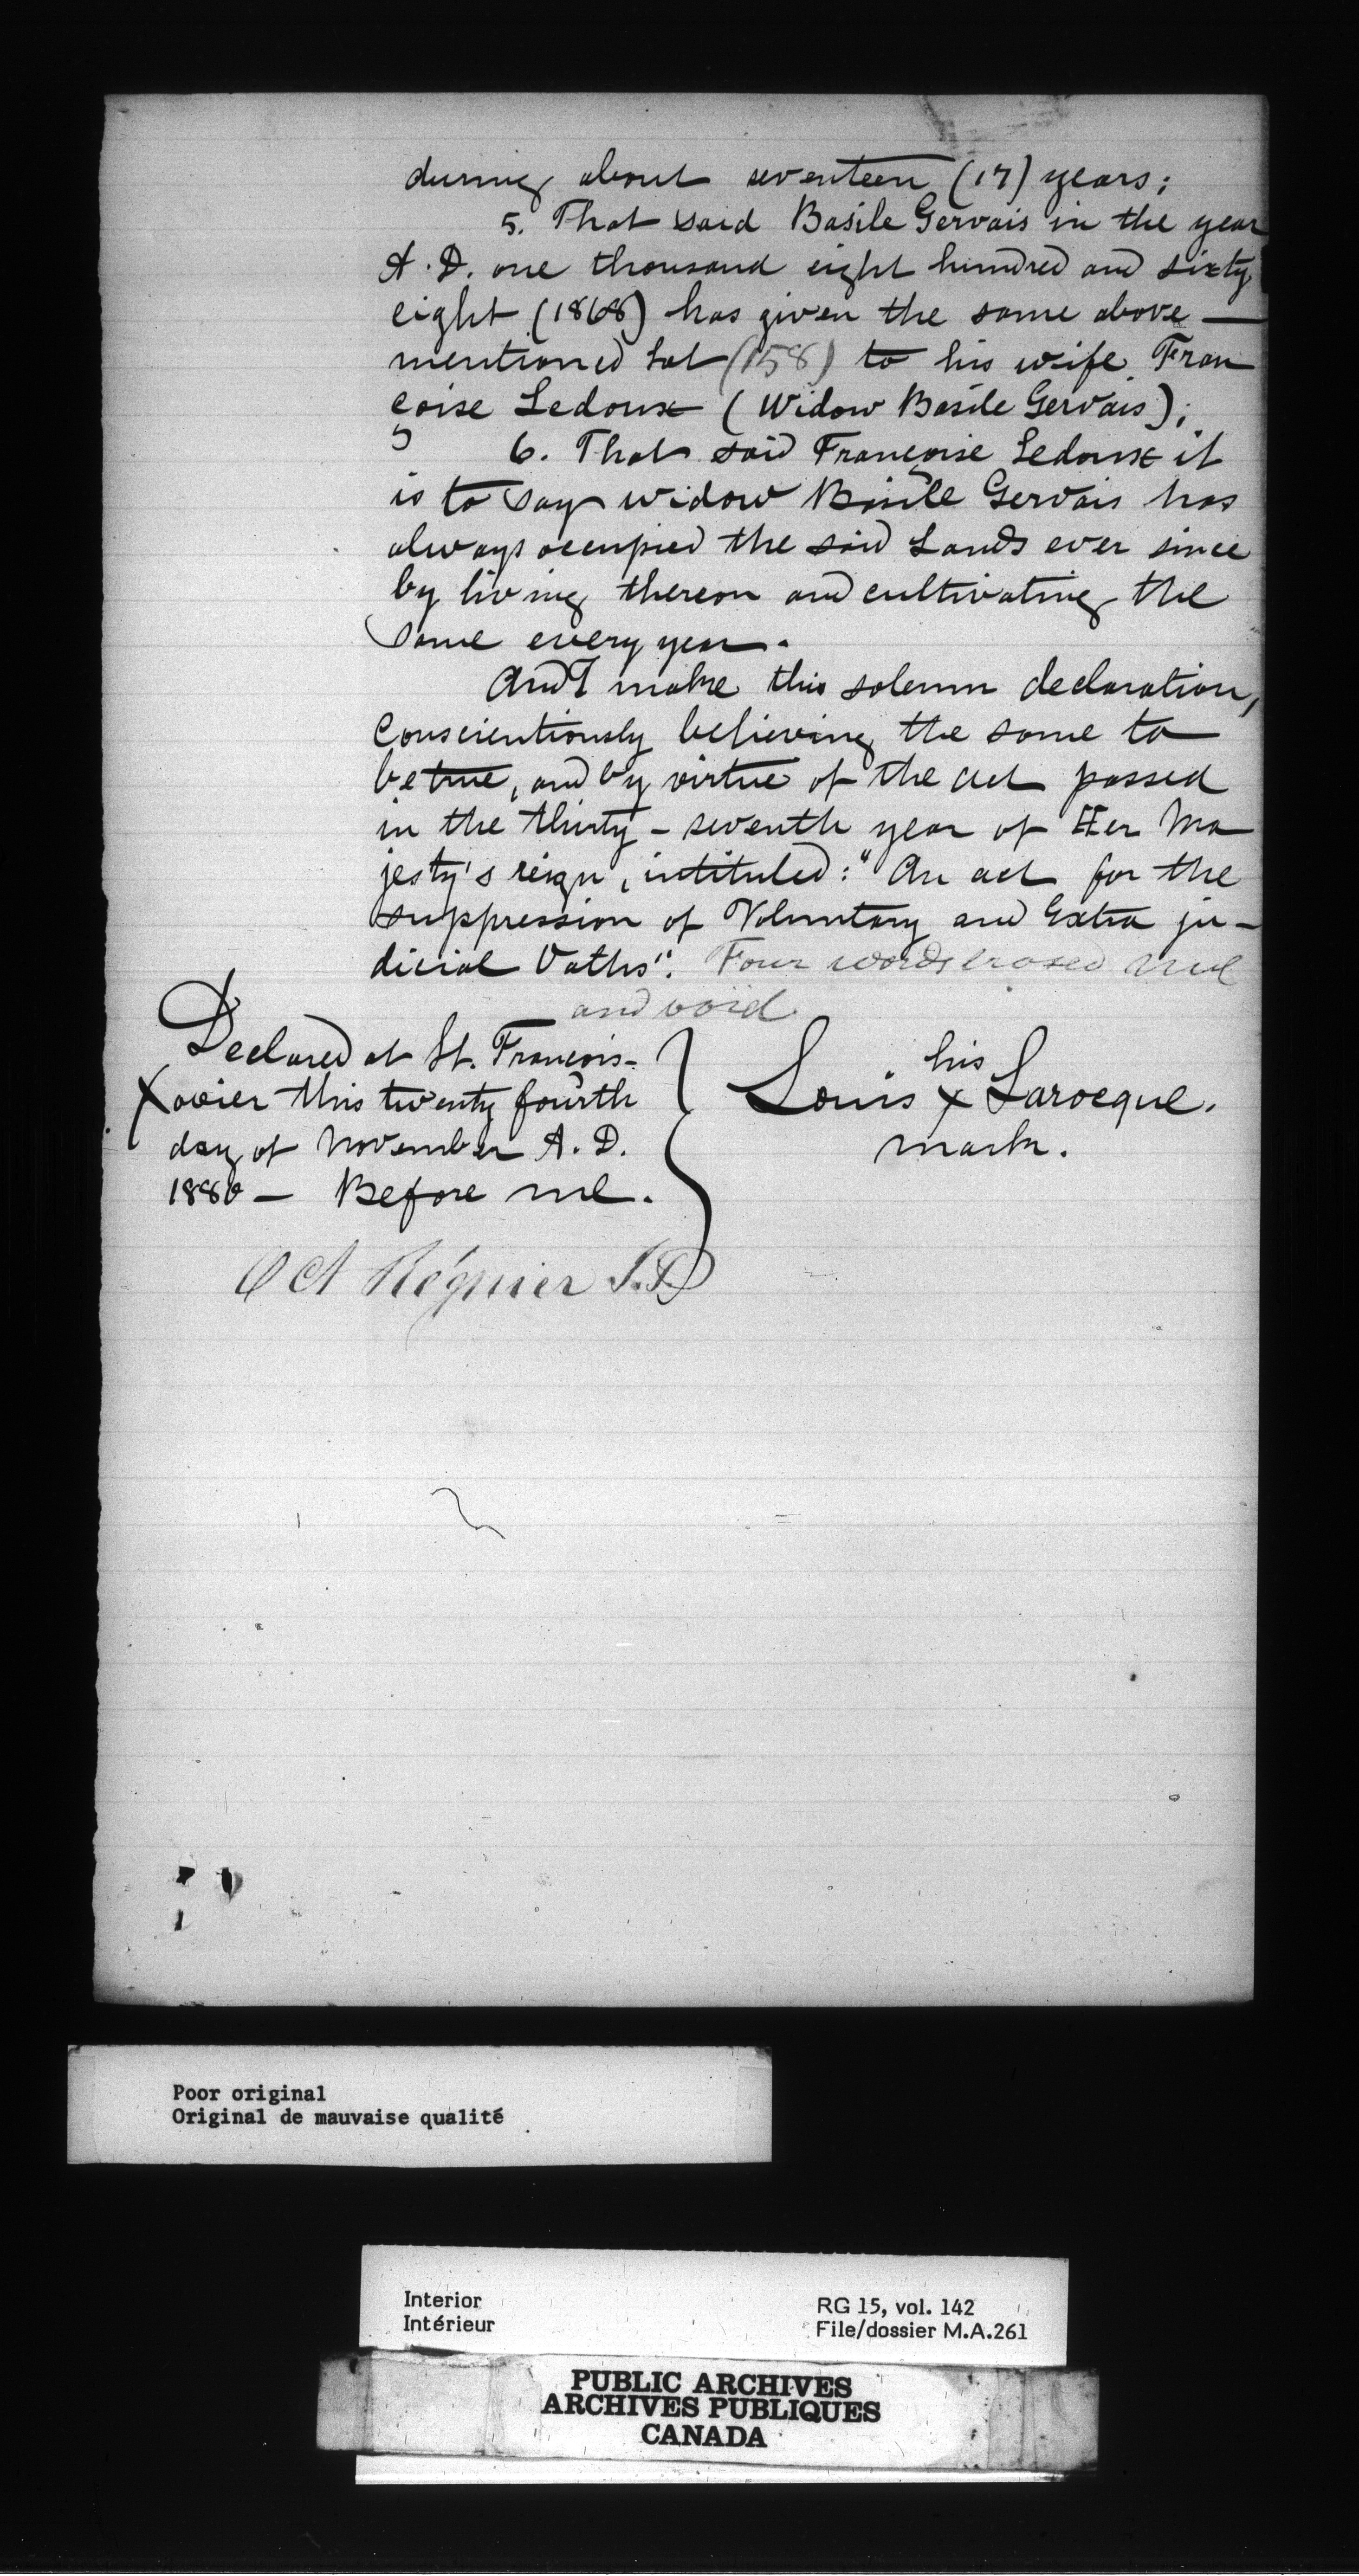 during about seventeen (17) years;
5. That said Basile Gervais in the year
A. D. one thousand eight hundred and sixty
eight (1868) has given the same above —
mentioned Lot (158) to his wife Fran
çoise Ledoux (Widow Basile Gervais);
6. That said Françoise Ledoux it
is to say widow Basile Gervais has
always occupied the said Lands ever since
by living thereon and cultivating the
same every year.
And I make this solemn declaration,
Conscientiously believing the same to
be true, and by virtue of the act passed
in the thirty - seventh year of Her Ma
jesty's reign, intituled: "An act for the
suppression of Voluntary and Extra ju-
dicial Oaths". Four words erased null
and void
Declared at St. François-
Xavier this twenty fourth
day of November A. D.
1880 — Before me.
his
Louis x Larocque.
mark.
Oct Régnier J.P
Poor original
Original de mauvaise qualité
Interior
Intérieur
RG 15, vol. 142
File/dossier M.A.261
PUBLIC ARCHIVES
ARCHIVES PUBLIQUES
CANADA